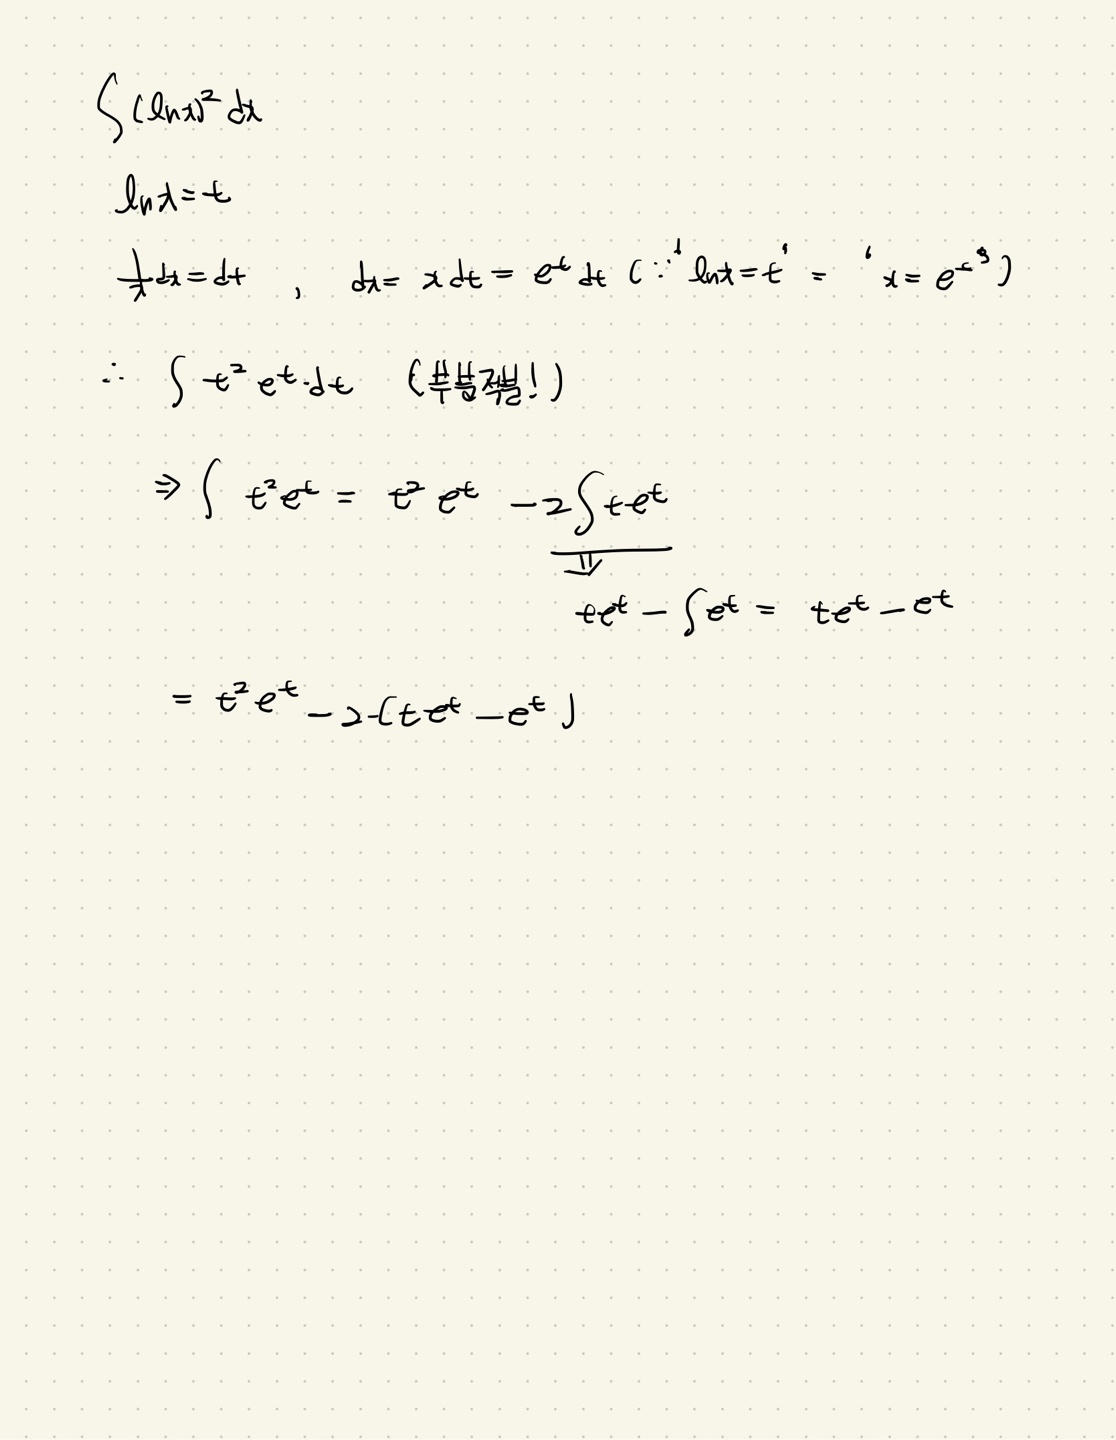 ∫(lnx)² dx
lnx = t
1/x dx = dt , dx = x dt = e^t dt (∵ 'lnx = t' = 'x = e^t')
∴ ∫ t² e^t · dt (부분적분!)
⇒ ∫ t² e^t = t² e^t − 2∫ t e^t
⇓
te^t − ∫e^t = te^t − e^t
= t² e^t − 2·(t e^t − e^t)